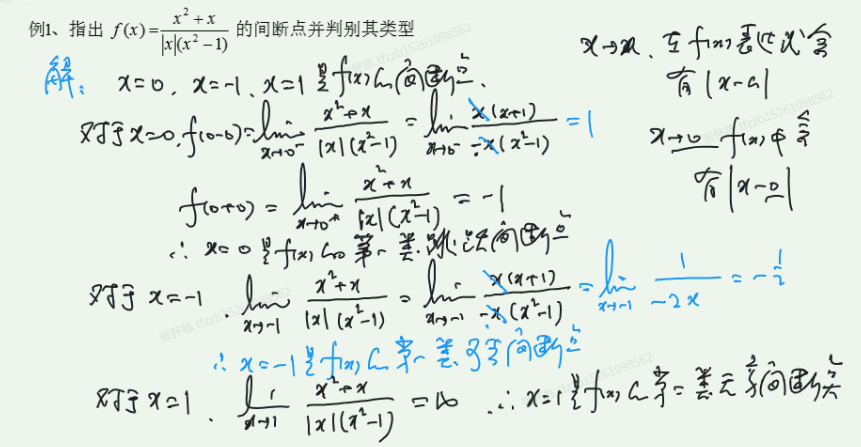 例1、指出 f(x)=\frac{x^2+x}{|x|(x^2-1)} 的间断点并判别其类型
x→a, 在f(x)表达式含有|x-a|
解: x=0, x=-1, x=1是f(x)的间断点.
对于x=0, f(0-0)=\lim_{x→0^-}\frac{x^2+x}{|x|(x^2-1)}=\lim_{x→0^-}\frac{x(x+1)}{-x(x^2-1)}=1
x→0 f(x)中含有|x-0|
f(0+0)=\lim_{x→0^+}\frac{x^2+x}{|x|(x^2-1)}=-1
∴ x=0是f(x)的第一类跳跃间断点
对于x=-1, \lim_{x→-1}\frac{x^2+x}{|x|(x^2-1)}=\lim_{x→-1}\frac{x(x+1)}{-x(x^2-1)}=\lim_{x→-1}\frac{1}{-2x}=-\frac{1}{2}
∴ x=-1是f(x)的第一类可去间断点
对于x=1, \lim_{x→1}\frac{x^2+x}{|x|(x^2-1)}=∞ ∴ x=1是f(x)的第二类无穷间断点